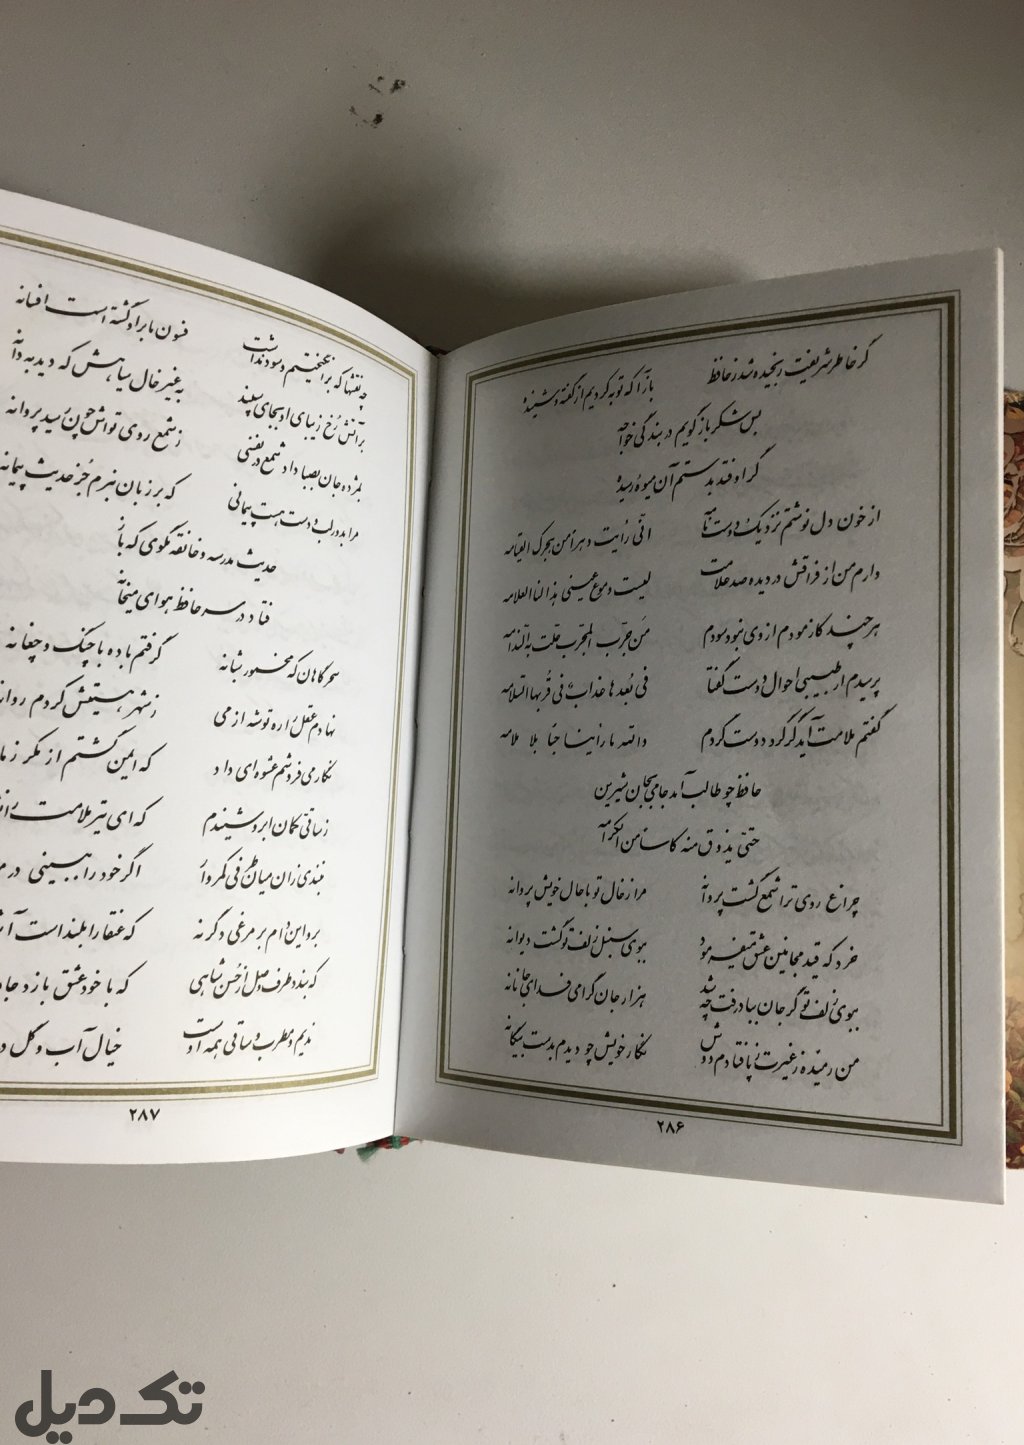 گر خاطر شریفت رنجیده شد ز حافظ بازآ که توبه کردیم از گفته و شنیده
بس شکر باز گویم در بندگی خواجه
گر اوفتد بدستم آن میوه رسیده
از خون دل نوشتم نزدیک دوست نامه انّی رأیت دهراً من هجرک القیامه
دارم من از فراقش در دیده صد علامت لیست دموع عینی هذا لنا العلامه
هر چند کازمودم از وی نبود سودم مَن جرّب المجرّب حلّت به الندامه
پرسیدم از طبیبی احوال دوست گفتا فی بُعدها عذابٌ فی قُربها السلامه
گفتم ملامت آید گر گرد دوست گردم والله ما رأینا حبّا بلا ملامه
حافظ چو طالب آمد جامی بجان شیرین
حتّی یذوق منه کاساً من الکرامه
چراغ روی ترا شمع گشت پروانه مرا ز خال تو با حال خویش پروانه
خرد که قید مجانین عشق میفرمود ببوی سنبل زلف تو گشت دیوانه
ببوی زلف تو گر جان بباد رفت چه شد هزار جان گرامی فدای جانانه
من رمیده ز غیرت ز پا فتادم دوش نگار خویش چو دیدم بدست بیگانه
۲۸۶
چه نقشها که برانگیختیم و سود نداشت فسون ما بر او گشته است افسانه
بر آتش رُخ زیبای او بجای سپند به غیر خال سیاهش که دید به دانه
بمژده جان بصبا داد شمع در نفسی ز شمع روی تواش چون رسید پروانه
مرا بدور لب دوست هست پیمانی که بر زبان نبرم جُز حدیث پیمانه
حدیث مدرسه و خانقه مگوی که باز
فتاد در سر حافظ هوای میخانه
سحرگاهان که مخمور شبانه گرفتم باده با چنگ و چغانه
نهادم عقل را ره توشه از می ز شهر هستیش کردم روانه
نگار می فروشم عشوه ای داد که ایمن گشتم از مکر
ز ساقی کمان ابرو شنیدم که ای تیر ملامت را
نبندی زان میان طرفی کمروار اگر خود را ببینی در
برو این دام بر مرغی دگر نه که عنقا را بلند است
که بندد طرف وصل از حُسن شاهی که با خود عشق بازد
ندیم و مطرب و ساقی همه اوست خیال آب و گل
۲۸۷
تک دیل